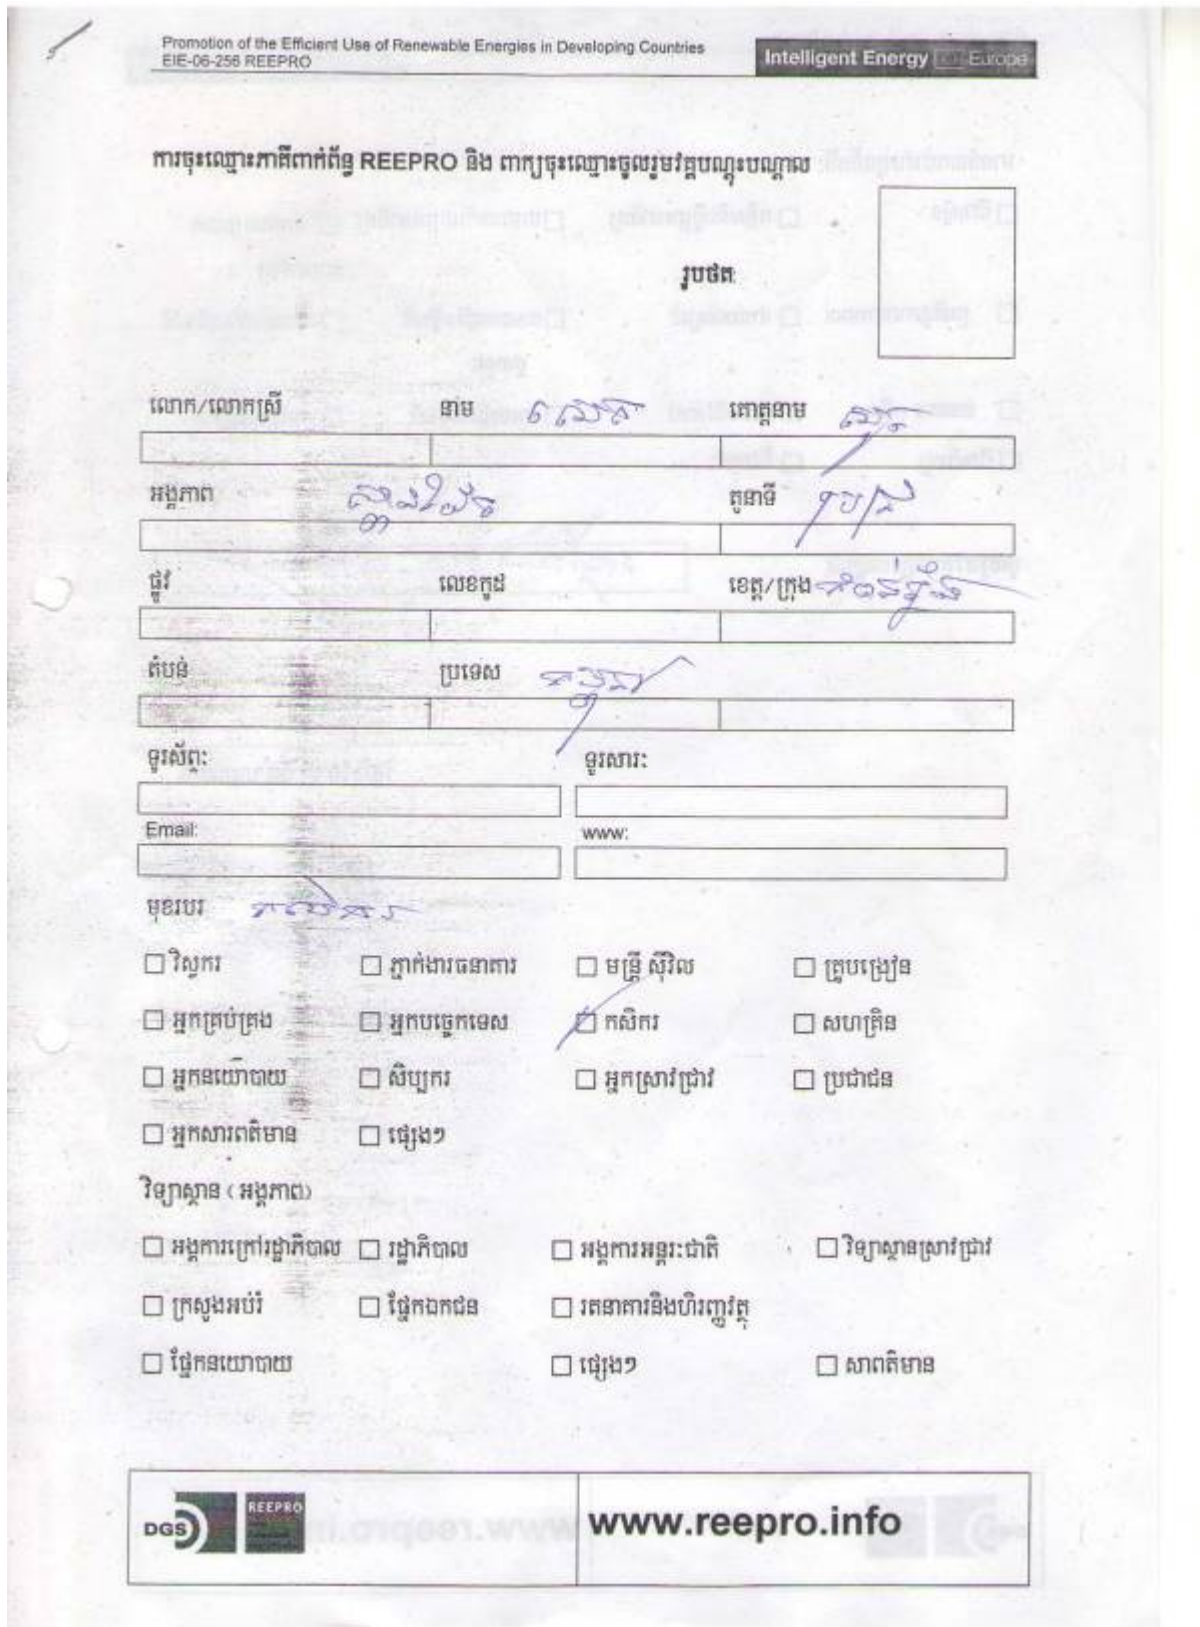 Promotion of the Efficient Use of Renewable Energies in Developing Countries
EIE-06-256 REEPRO
Intelligent Energy Europe
ការចុះឈ្មោះភាគីពាក់ព័ន្ធ REEPRO និង ពាក្យចុះឈ្មោះចូលរួមវគ្គបណ្តុះបណ្តាល
រូបថត:
លោក/លោកស្រី នាម គោត្តនាម
អង្គភាព តួនាទី
ផ្លូវ លេខកូដ ខេត្ត/ក្រុង កំពង់ឆ្នាំង
តំបន់ ប្រទេស កម្ពុជា
ទូរស័ព្ទ: ទូរសារ:
Email: www:
មុខរបរ កសិករ
វិស្វករ ភ្នាក់ងារធនាគារ មន្ត្រី ស៊ីវិល គ្រូបង្រៀន
អ្នកគ្រប់គ្រង អ្នកបច្ចេកទេស កសិករ សហគ្រិន
អ្នកនយោបាយ សិប្បករ អ្នកស្រាវជ្រាវ ប្រជាជន
អ្នកសារពត៌មាន ផ្សេងៗ
វិទ្យាស្ថាន (អង្គភាព)
អង្គការក្រៅរដ្ឋាភិបាល រដ្ឋាភិបាល អង្គការអន្តរ:ជាតិ វិទ្យាស្ថានស្រាវជ្រាវ
ក្រសួងអប់រំ ផ្នែកឯកជន រតនាគារនិងហិរញ្ញវត្ថុ
ផ្នែកនយោបាយ ផ្សេងៗ សាពត៌មាន
DGS REEPRO www.reepro.info